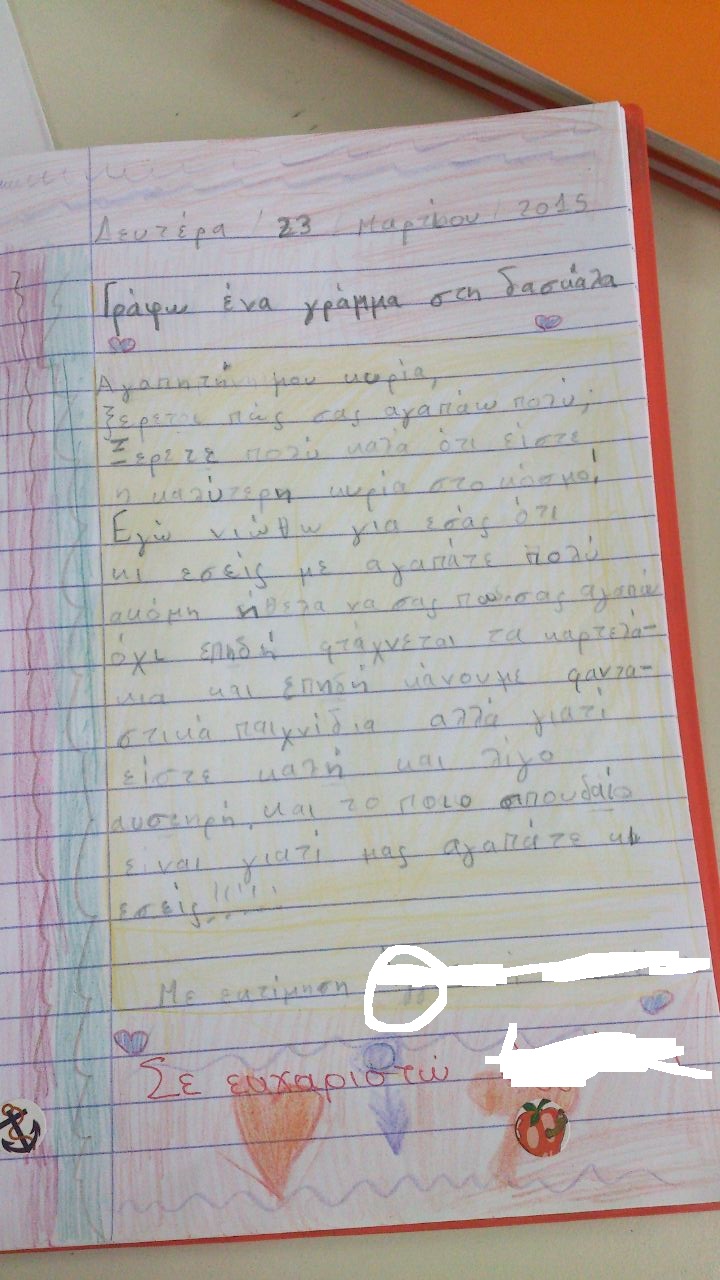 Δευτέρα / 23 / Μαρτίου / 2015
Γράφω ένα γράμμα στη δασκάλα
Αγαπητή μου κυρία,
ξέρεται πώς σας αγαπάω πολύ;
Ξέρετε πολύ καλα ότι είστε
η καλύτερη κυρία στο κόσμο!
Εγώ νιώθω για εσάς ότι
κι εσείς με αγαπάτε πολύ
ακόμη ήθελα να σας πω σας αγαπώ
όχι επηδή φτάχνεται τα καρτελά-
κια και επηδή κάνουμε φαντα-
στικά παιχνίδια αλλά γιατί
είστε καλή και λίγο
αυστηρή. και το ποιο σπουδαίο
είναι γιατί μας αγαπάτε κι
εσείς!!!!!
Με εκτίμηση
Σε ευχαριστώ